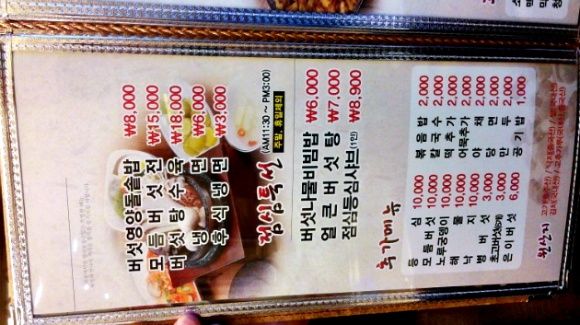 버섯영양돌솥밥 ₩8,000
모듬버섯전 ₩15,000
버섯탕수육 ₩18,000
냉면 ₩6,000
후식냉면 ₩3,000
점심특선 (AM11:30~PM3:00) 주말, 휴일제외
버섯나물비빔밥 ₩6,000
얼큰버섯탕 ₩7,000
점심등심샤브(1인) ₩8,900
추가메뉴
등심 10,000 볶음밥 2,000
모듬버섯 10,000 칼국수 2,000
노루궁뎅이 10,000 떡추가 2,000
해물 10,000 어묵추가 2,000
낙지 10,000 야채 2,000
병버섯 3,000 당면 2,000
초고버섯(5개) 3,000 만두 2,000
은이버섯 6,000 공기밥 1,000
원산지